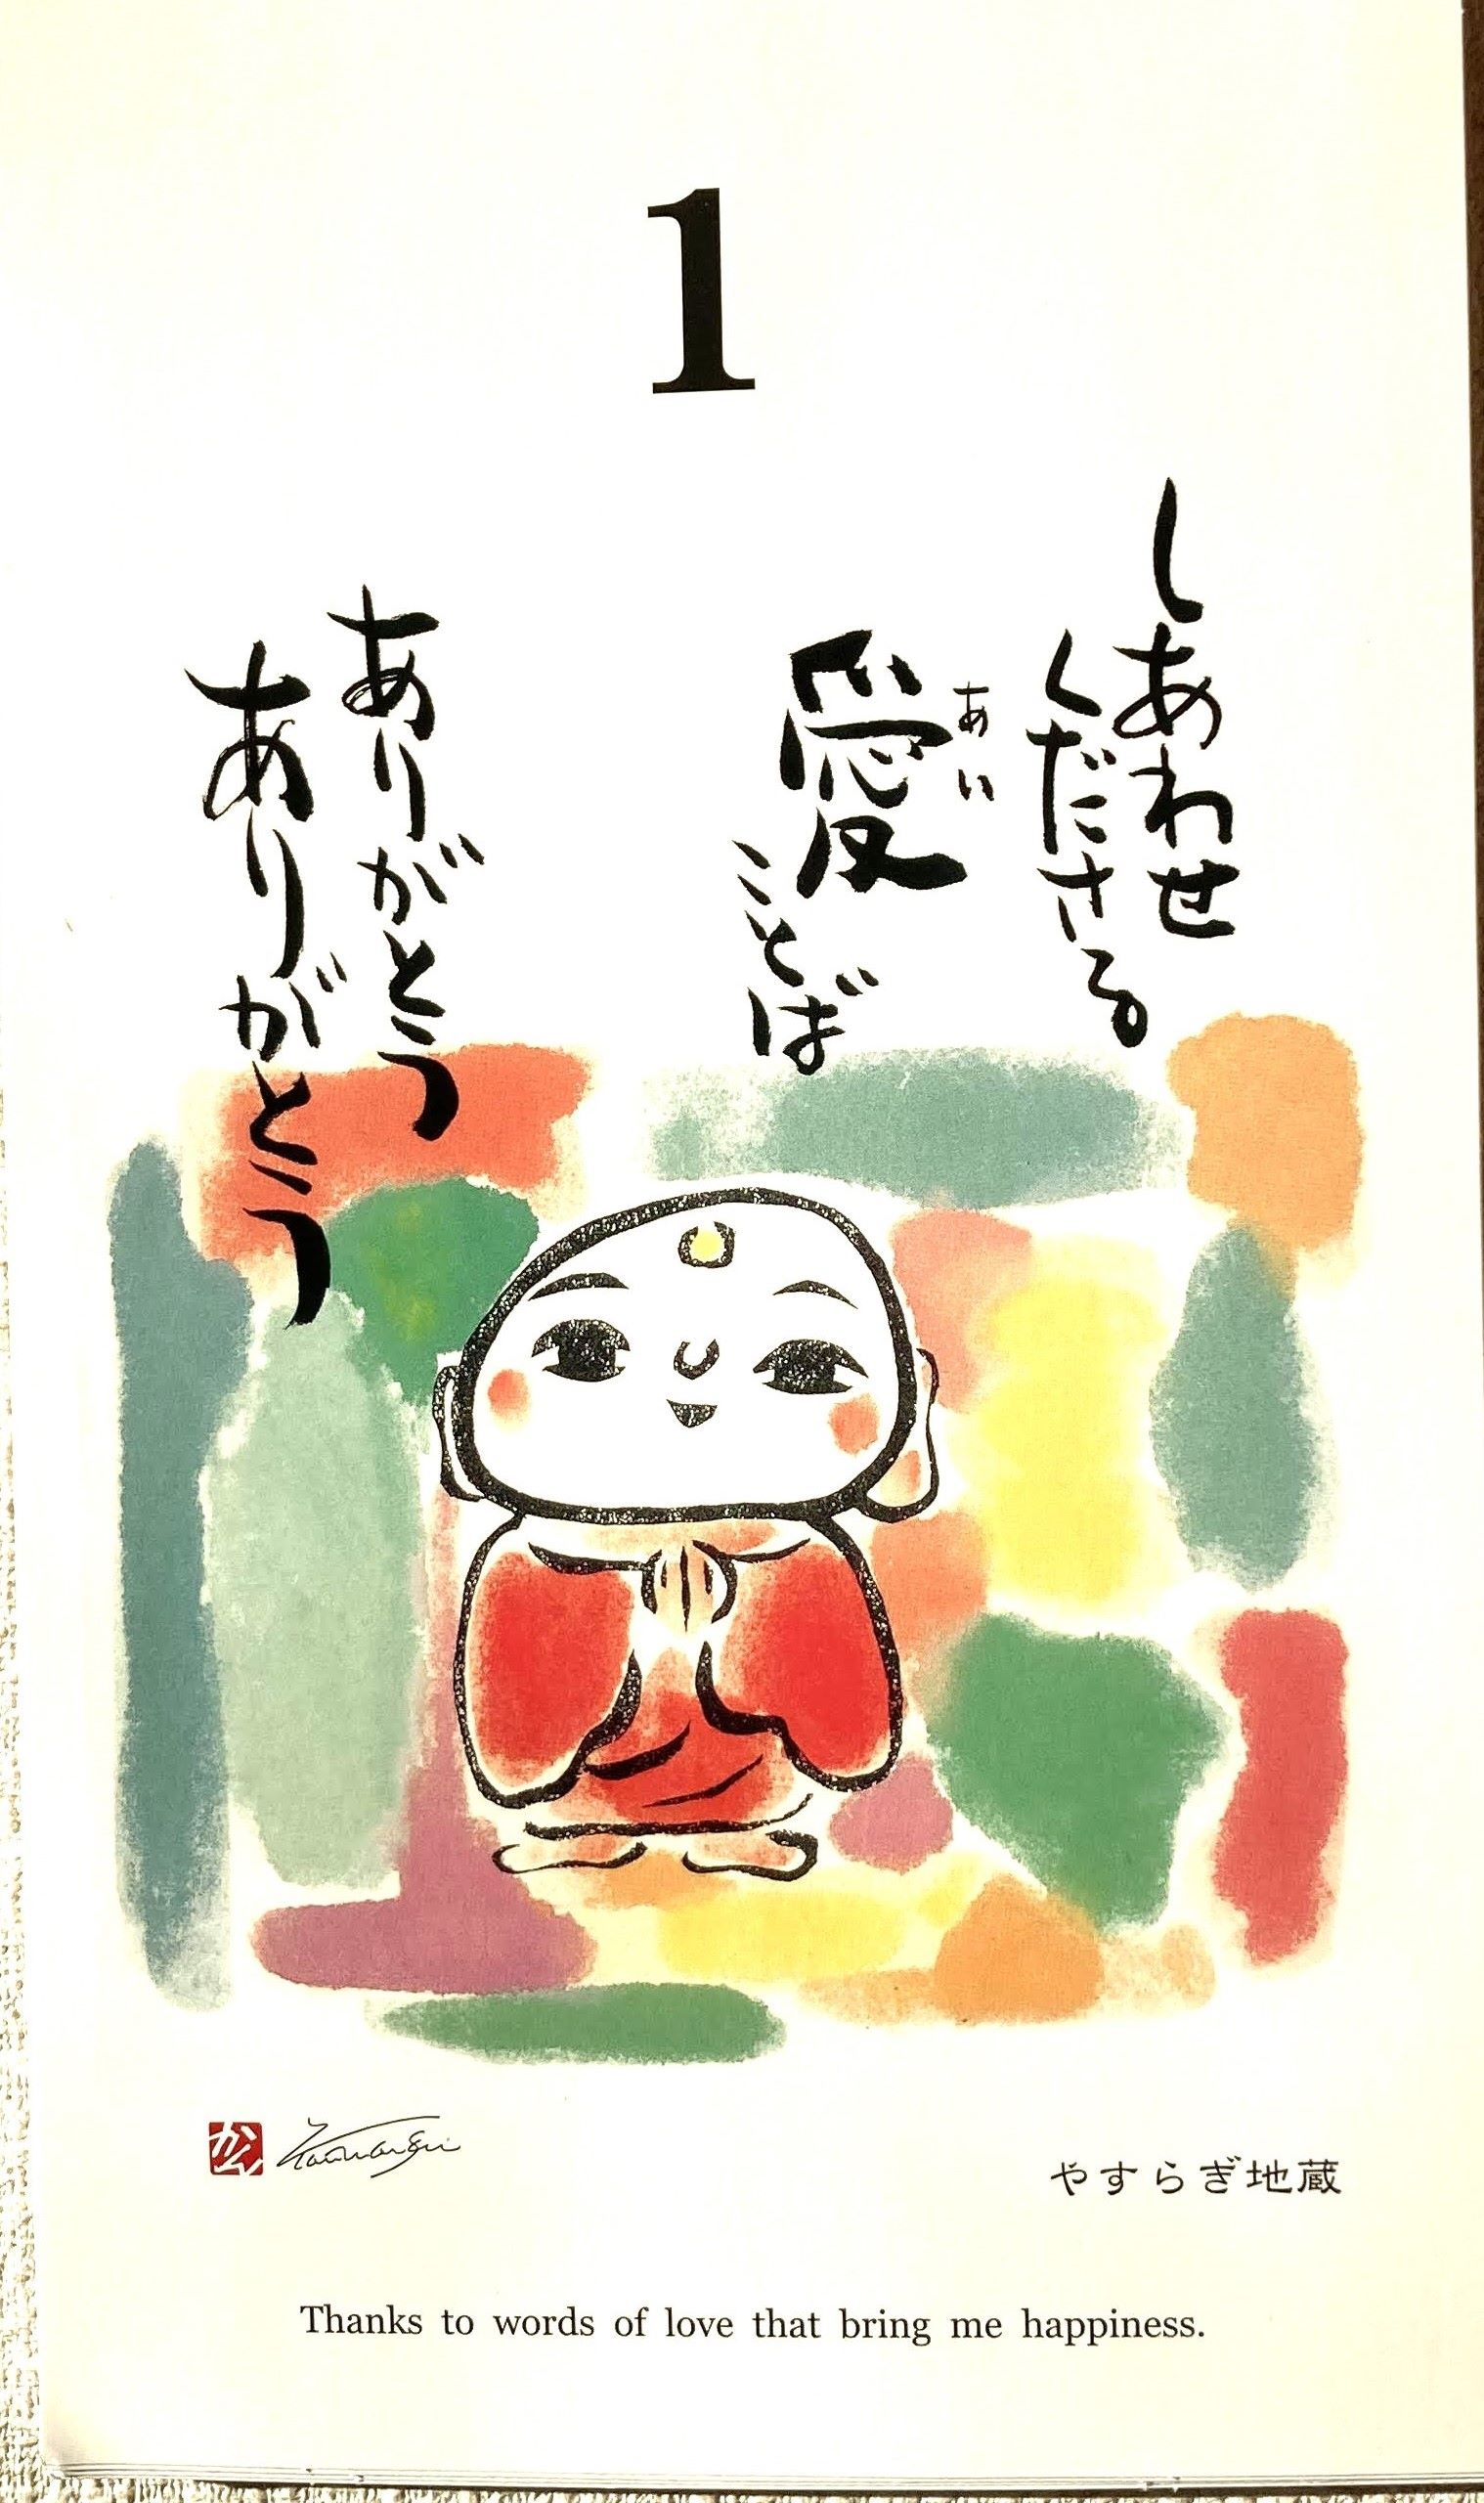 1
しあわせ
くださる
愛
あい
ことば
ありがとう
ありがとう
やすらぎ地蔵
Thanks to words of love that bring me happiness.